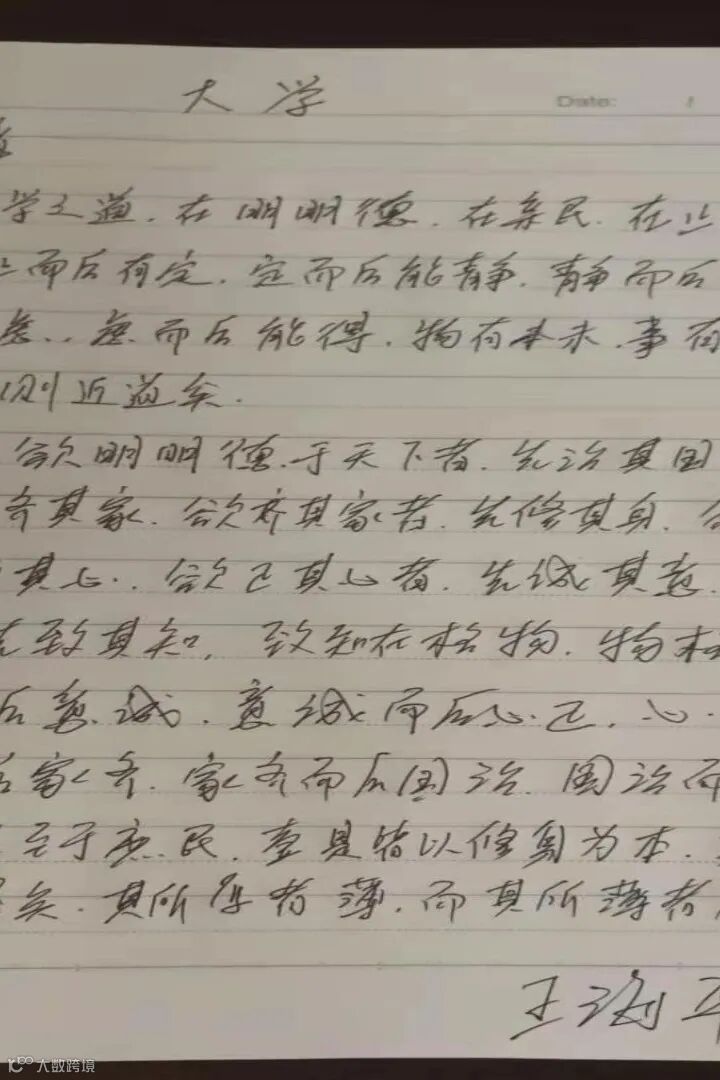 大学
Date: /
学之道.在明明德.在亲民.在止
而后有定.定而后能静.静而后
虑..虑而后能得.物有本末.事有
则近道矣.
欲明明德.于天下者.先治其国
齐其家.欲齐其家者.先修其身.
其心..欲正其心者.先诚其意.
先致其知,致知在格物.物格
后意诚.意诚而后心正.心
后家齐.家齐而后国治.国治而
至于庶民.壹是皆以修身为本.
矣.其所厚者薄.而其所薄者
王海平
大数跨境